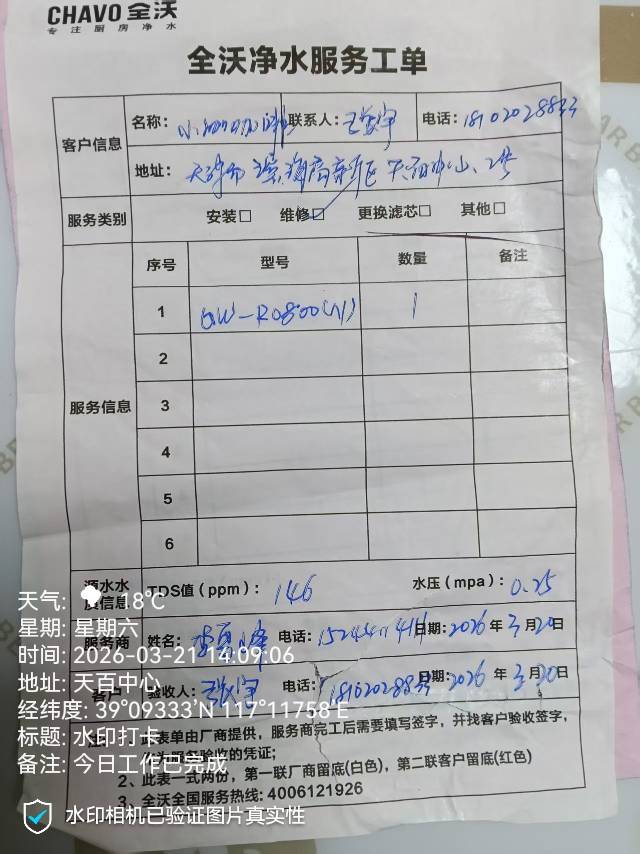 CHAVO 全沃
专注厨房净水
全沃净水服务工单
客户信息
名称: 联系人: 电话:
地址: 天津市滨海高新区 中心 2号
服务类别 安装□ 维修☑ 更换滤芯□ 其他□
服务信息
序号 型号 数量 备注
1 QW-RO800(A1) 1
2
3
4
5
6
源水水质信息 TDS值(ppm): 146 水压(mpa): 0.25
服务商 姓名: 电话: 日期: 2026年3月20日
客户 验收人: 电话: 日期: 2026年3月20日
本表单由厂商提供,服务商完工后需要填写签字,并找客户验收签字,
作为服务验收的凭证;
2、此表一式两份,第一联厂商留底(白色),第二联客户留底(红色)
3、全沃全国服务热线: 4006121926
天气: 18℃
星期: 星期六
时间: 2026-03-21 14:09:06
地址: 天百中心
经纬度: 39°09333′N 117°11758′E
标题: 水印打卡
备注: 今日工作已完成
水印相机已验证图片真实性